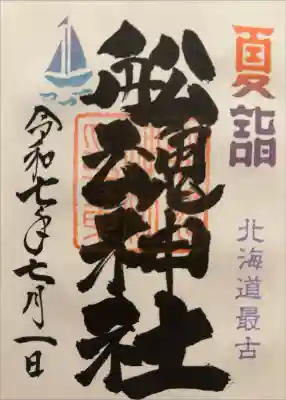 夏詣
北海道最古
舩魂神社
令和七年七月一日